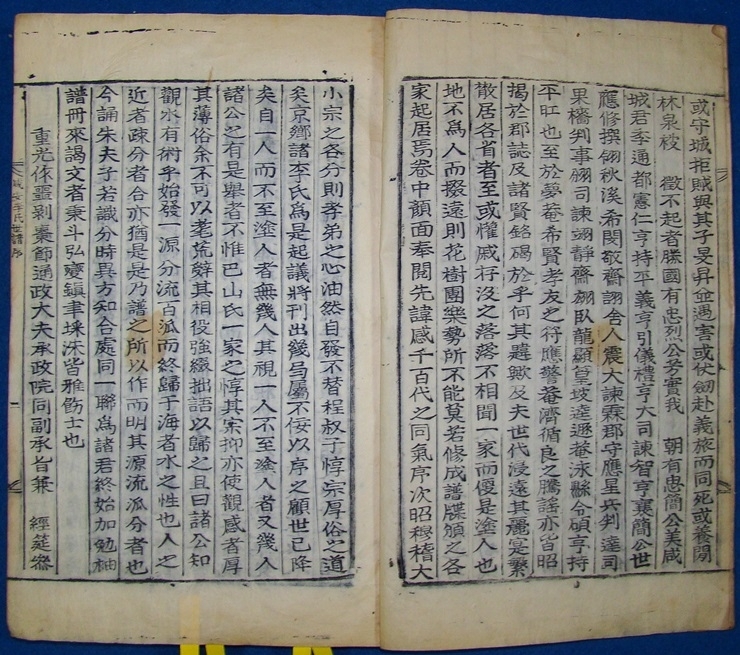 或守城拒賊與其子旻昇並遇害或伏劒赴義旅而同死或養閒
林泉梭 徵不起者勝國有忠烈公考實我 朝有忠簡公美咸
城君季通都憲仁亨持平義亨引儀禮亨大司諫智亨襄簡公世
應修撰翎秋溪希閔敬齋詡舍人震大諫霖郡守應星兵判 達司
果𥠧判事翩司諫翊靜齋翩臥龍顯篁坡達遯菴泳縣令碩亨持
平缸也至於夢菴希賢孝友之符應警菴濟循良之騰謠亦皆昭
揭於郡誌及諸賢銘碣於乎何其韙歟及夫世代浸遠其麗寔繁
散居各省者至或懽戚存沒之落落不相聞一家而便是塗人也
地不爲人而掇遠則花樹團樂勢所不能莫若修成譜牒頒之各
家起居焉卷中顏面奉閱先諱感千百代之同氣序次昭穆稽大
小宗之各分則孝弟之心油然自發不替程叔子惇宗厚俗之道
矣京鄉諸李氏爲是起議將刊出幾局屬不佞以序之顧世已降
矣自一人而不至塗人者無幾人其視一人不至塗人者又幾人
諸公之有是舉者不惟巴山氏一家之惇其宗抑亦使觀感者厚
其薄俗余不可以耄荒辭其相役強綴拙語以歸之且曰諸公知
觀水有術乎始發一源分流百派而終歸于海者水之性也人之
近者疎分者合亦猶是是乃譜之所以作而明其源流派分者也
今誦朱夫子若識分時異方知合處同一聯爲諸君終始加勉袖
譜冊來謁文者秉斗弘 鎭聿琜洙皆雅飭士也
重光作噩剝棗節通政大夫承政院同副承旨兼 經筵參
李氏世譜序